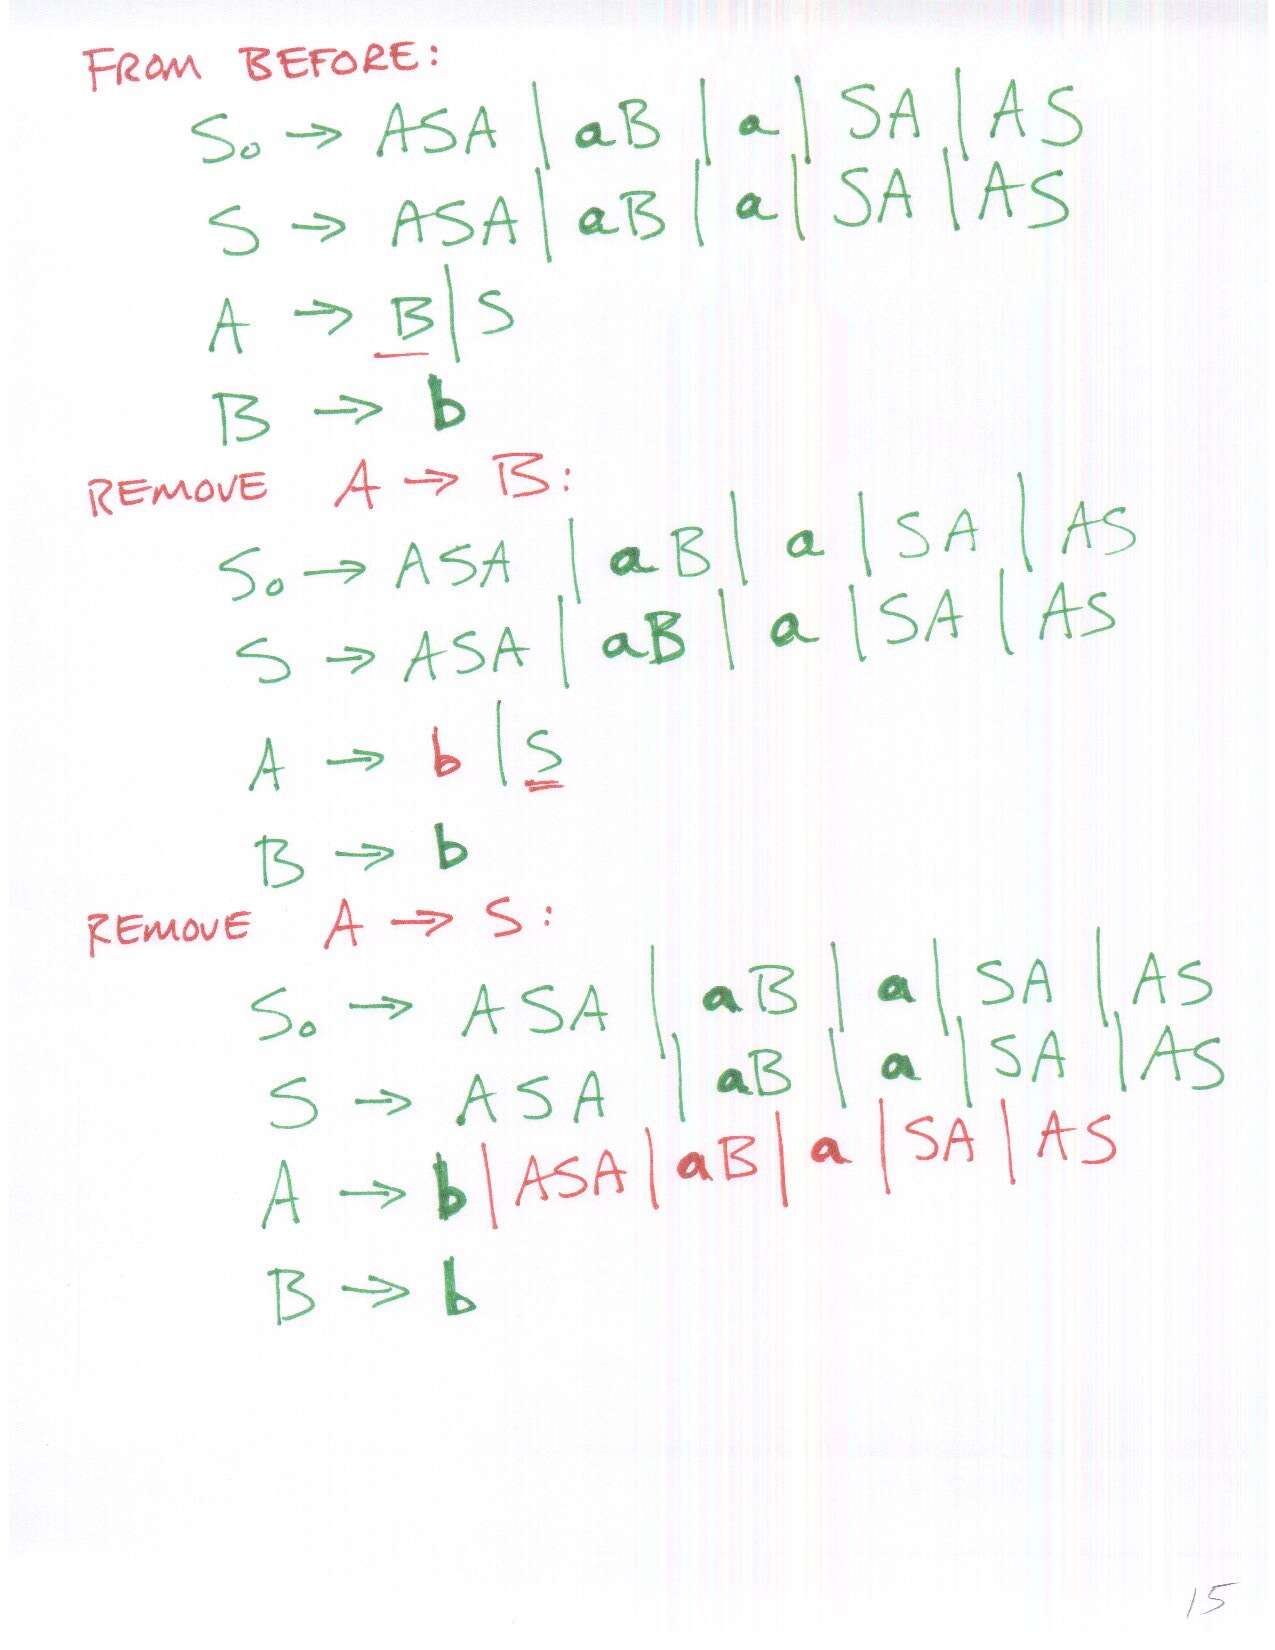 FROM BEFORE:
S₀ → ASA | aB | a | SA | AS
S → ASA | aB | a | SA | AS
A → B | S
B → b
REMOVE A → B:
S₀ → ASA | aB | a | SA | AS
S → ASA | aB | a | SA | AS
A → b | S
B → b
REMOVE A → S:
S₀ → ASA | aB | a | SA | AS
S → ASA | aB | a | SA | AS
A → b | ASA | aB | a | SA | AS
B → b
15